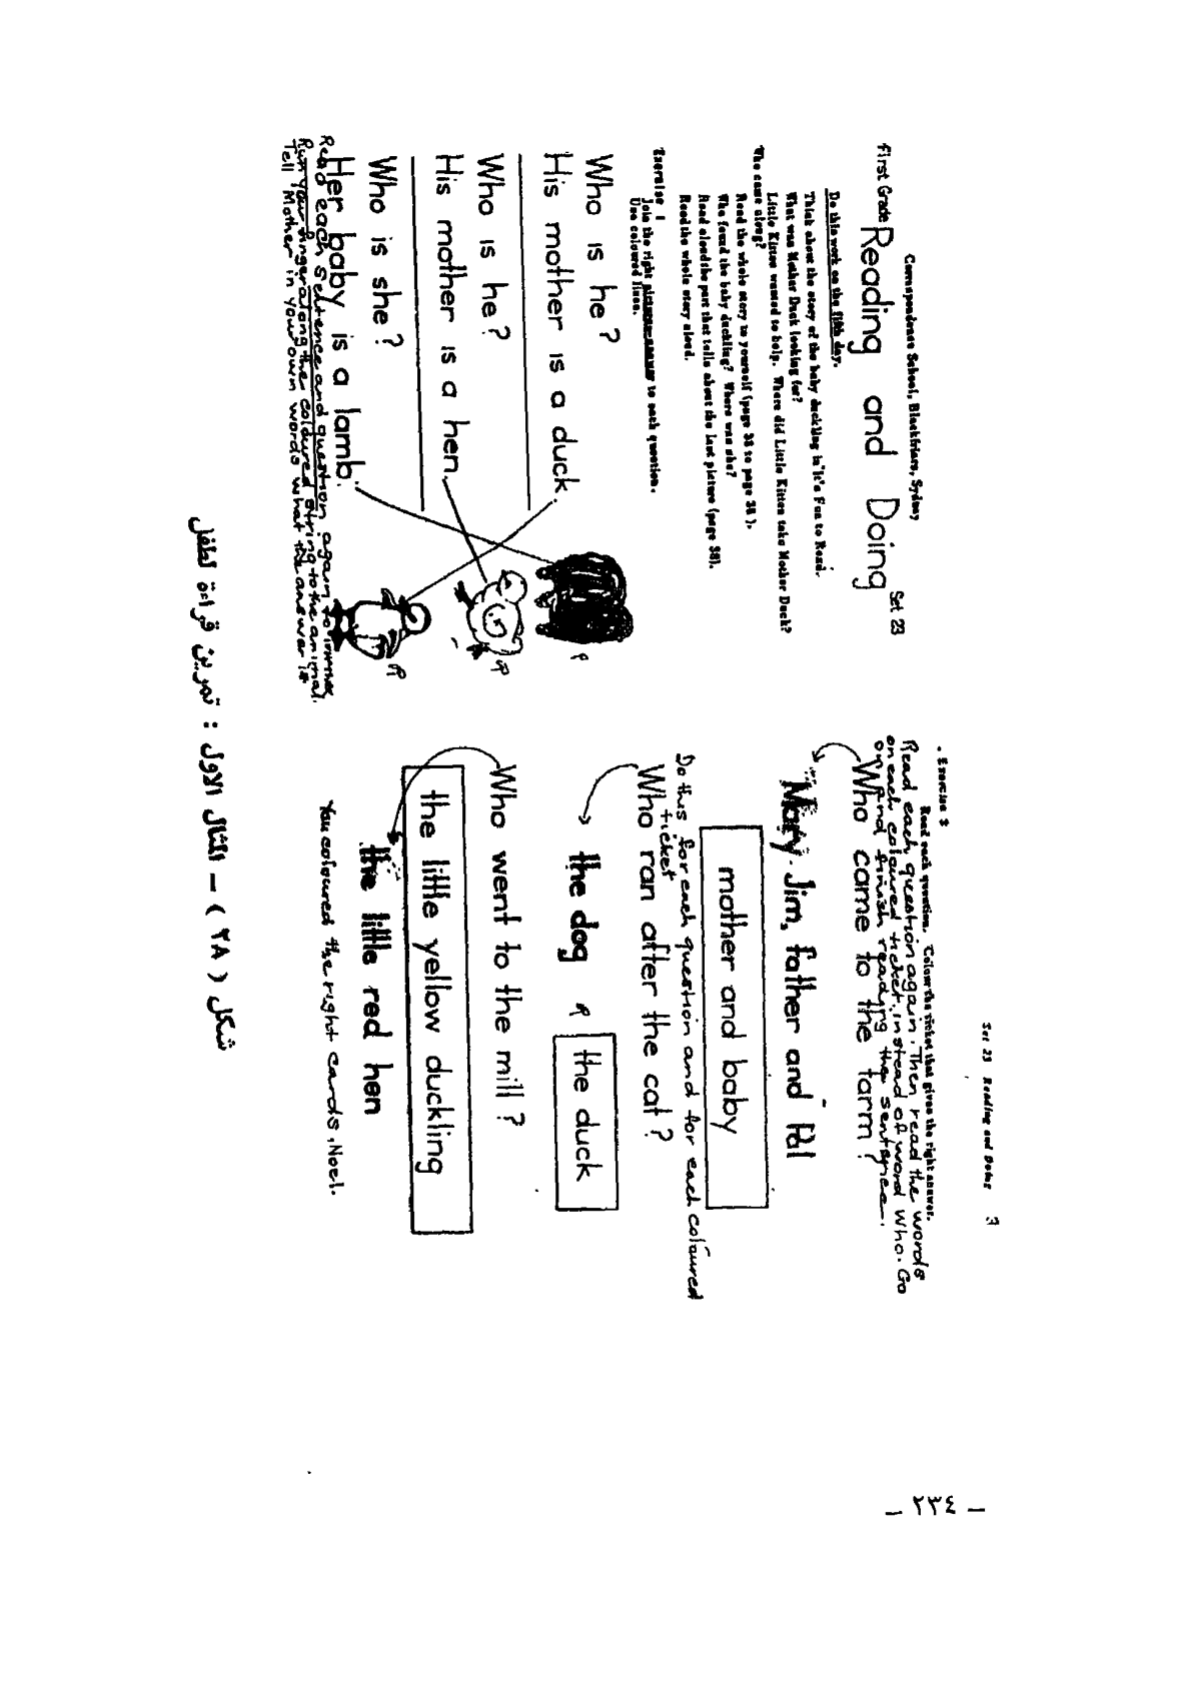 Correspondence School, Blackfriars, Sydney
First Grade Reading and Doing Set 23
Do this work on the fifth day.
Think about the story of the baby duckling in "It's Fun to Read.
What was Mother Duck looking for?
Little Kitten wanted to help. Where did Little Kitten take Mother Duck?
Who came along?
Read the whole story to yourself (page 35 to page 38).
Who found the baby duckling? Where was she?
Read aloud the part that tells about the last picture (page 38).
Read the whole story aloud.
Exercise 1
Join the right to each question.
Use coloured lines.
Who is he?
His mother is a duck.
Who is he?
His mother is a hen.
Who is she?
Her baby is a lamb.
Read each sentence and question again to
Run your finger along the coloured string to the animal.
Tell Mother in your own words what the answer is
Set 23 Reading and Doing 3
Exercise 3
Read each question. Colour the ticket that gives the right answer.
Read each question again. Then read the words
on each coloured ticket, instead of word Who. Go
on and finish reading the sentence.
Who came to the farm?
Mary. Jim, father and Pal
mother and baby
Do this for each question and for each coloured
ticket
Who ran after the cat?
the dog
the duck
Who went to the mill?
the little yellow duckling
the little red hen
You coloured the right cards, Noel.
شكل ( ٢٨ ) – المثال الاول : تمرين قراءة لطفل
– ٢٣٤ –